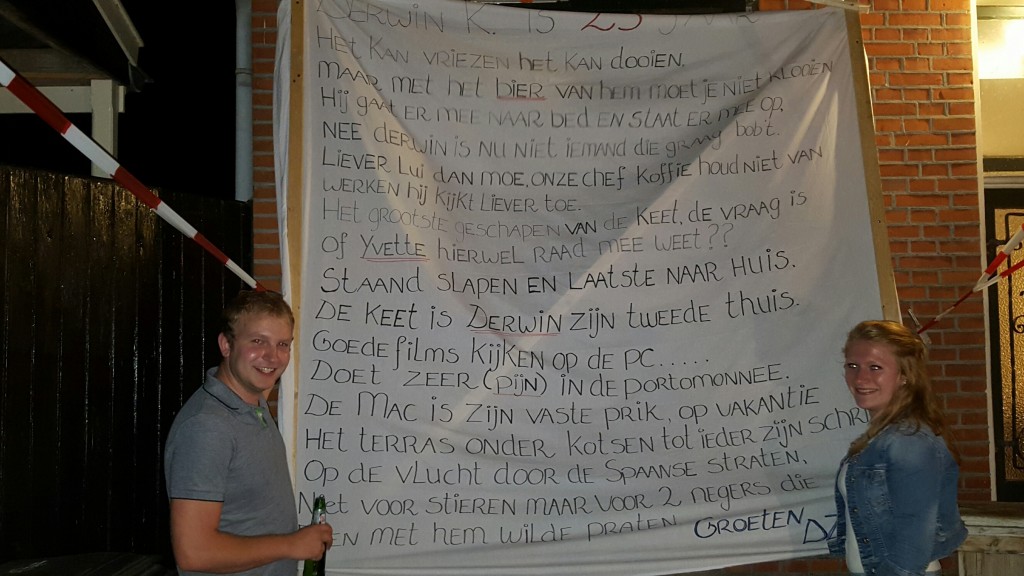 DERWIN K. IS 25 JAAR
HET KAN VRIEZEN HET KAN DOOIEN.
MAAR MET HET BIER VAN HEM MOET JE NIET KLOOIEN
Hij GAAT ER MEE NAAR BED EN STAAT ER MEE OP.
NEE DERWIN IS NU NIET IEMAND DIE GRAAG bobt.
LIEVER Lui DAN MOE, ONZE CHEF KOFFIE HOUD NIET VAN
WERKEN Hij Kijkt LIEVER TOE.
HET GROOTSTE GESCHAPEN VAN DE KEET, DE VRAAG IS
OF YVETTE HIERWEL RAAD MEE WEET??
STAAND SLAPEN EN LAATSTE NAAR HUIS.
DE KEET IS DERWIN ZIJN TWEEDE THUIS.
GOEDE FILMS KIJKEN OP DE PC.....
DOET ZEER (PIJN) IN DE PORTOMONNEE.
DE MAC IS ZIJN VASTE PRIK, OP VAKANTIE
HET TERRAS ONDER KOTSEN TOT IEDER ZIJN SCHRI
OP DE VLUCHT DOOR DE SPAANSE STRATEN,
NIET VOOR STIEREN MAAR VOOR 2 NEGERS DIE
MET HEM WILDE PRATEN. GROETEN